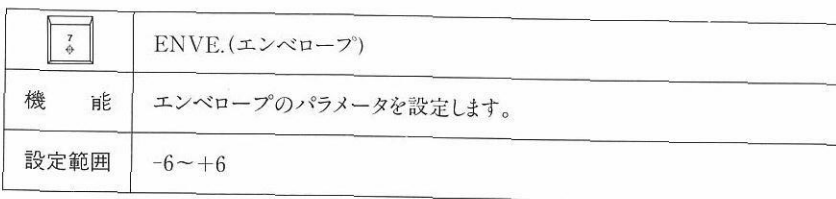 7 ENVE.(エンベロープ)
機 能 エンベロープのパラメータを設定します。
設定範囲 -6～+6